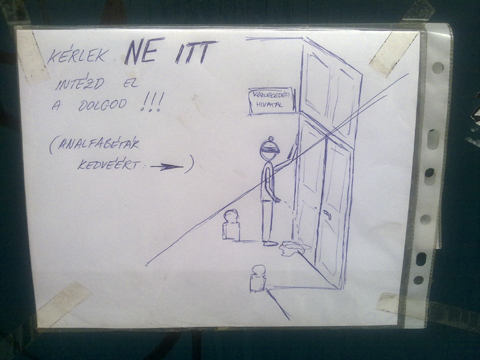 KÉRLEK NE ITT
INTÉZD EL
A DOLGOD !!!
(ANALFABÉTÁK
KEDVÉÉRT → )
HIVATAL